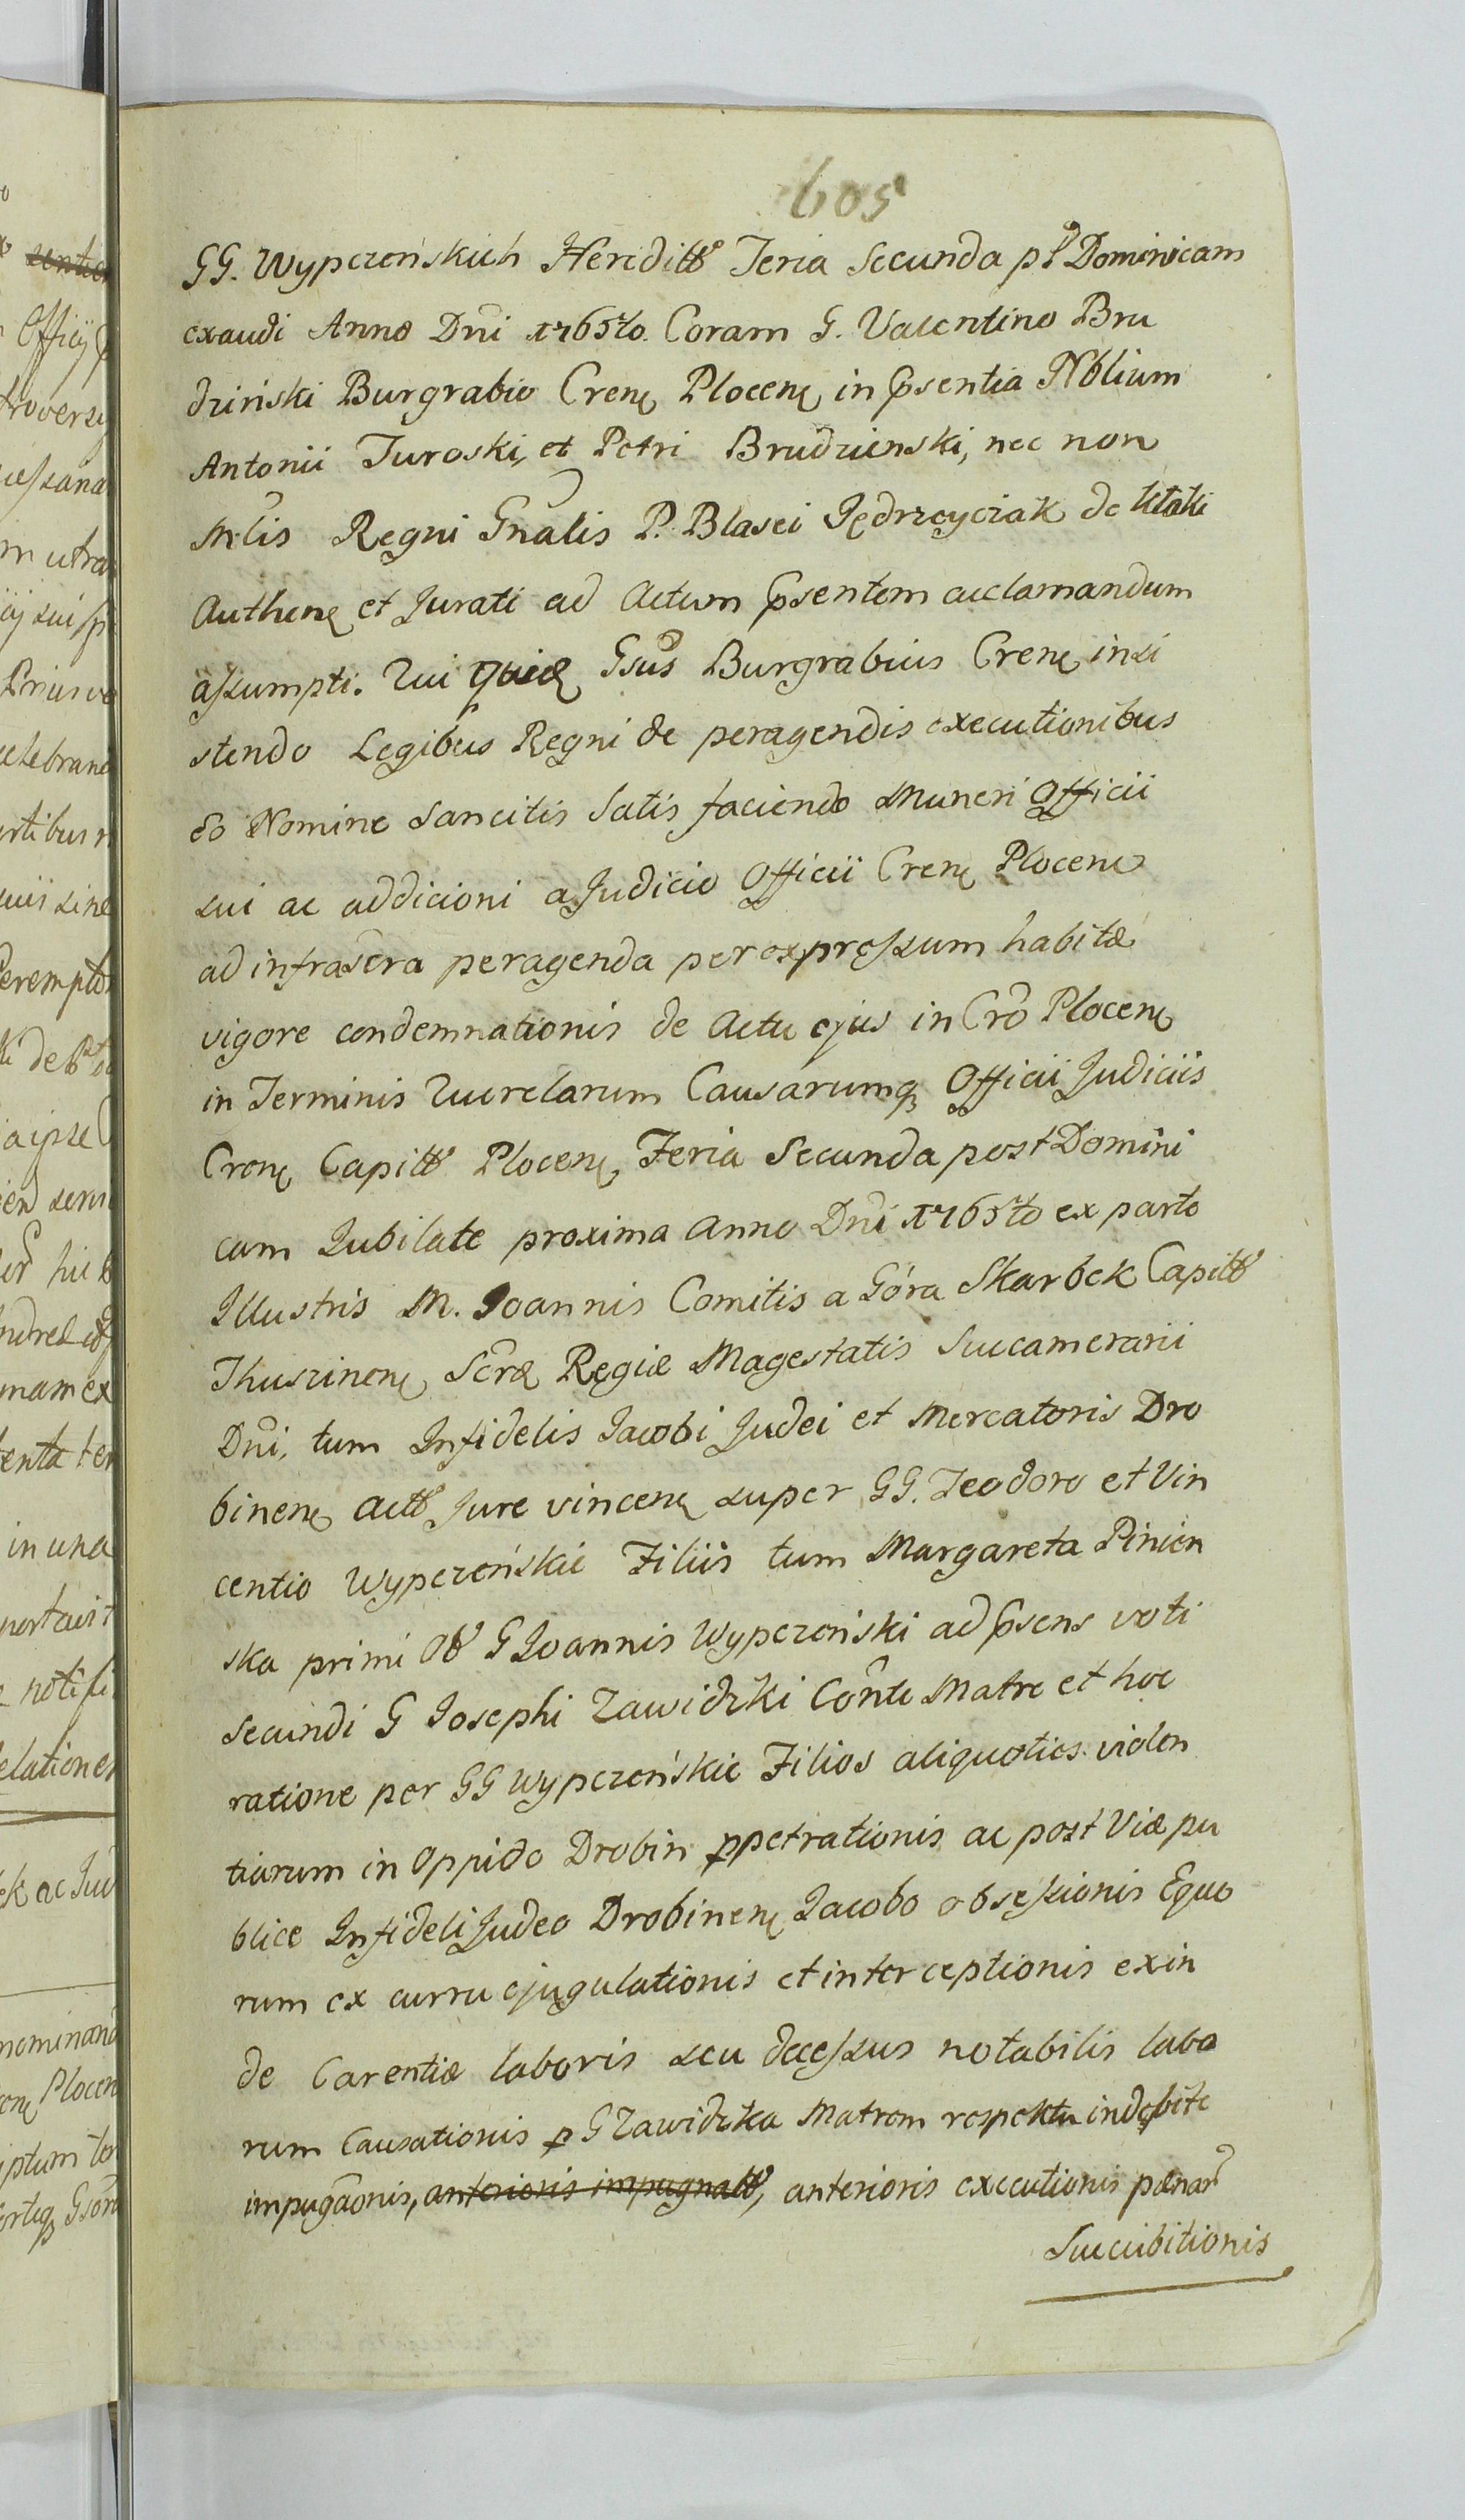 605
GG. Wypczeńskich Heredittõ Feria Secunda pt Dominicam
exaudi Anno Dni 1765to. Coram G. Valentino Bru
dziński Burgrabio Crenę Plocenę in psentia Nblium
Antonii Turoski, et Petri Brudzienski, nec non
Mlis Regni Gnalis P. Blasei Jędrzeyciak de
Authenę et Jurati ad Actum psentem acclamandum
assumpti. Qui quidę Gsus Burgrabius Crenę insi
stendo Legibus Regni de peragendis executionibus
eo Nomine Sancitis Satis faciendo Muneri Officii
sui ac addicioni a Judicio Officii Crenę Plocenę
ad infrascra peragenda per expressum habitæ
vigore condemnationis de Actu ejus in Cro Plocenę
in Terminis Querelarum Causarumq Officii Judiciis
Crenę Capittõ Plocenę, Feria Secunda post Domini
cam Jubilate proxima Anno Dni 1765to ex parte
Illustris M. Joannis Comitis a Góra Skarbek Capittõ
Thuszinenę Scræ Regiæ Magestatis Succamerarii
Dni, tum Infidelis Jacobi Judei et Mercatoris Dro
binenę acttõ Jure vincenę super GG. Teodoro et Vin
centio Wypczeńskie Filiis tum Margareta Pinien
ska primi Oõ G Joannis Wypczeński ad psens voti
secundi G Josephi Zawidzki Conte Matre et hoc
ratione per GG Wypczeńskie Filios aliquoties violen
tiarum in Oppido Drobin ppetrationis ac post Viæ pu
blice Infideli Judeo Drobinenę Jacobo obsessionis Equo
rum ex curru ejugulationis et interceptionis exin
de Carentiæ laboris seu decessus notabilis labo
rum Causationis p G Zawidzka Matrem respektu indebite
impugaonis, anterioris impugnattõ, anterioris executionis pænar
Succubitionis